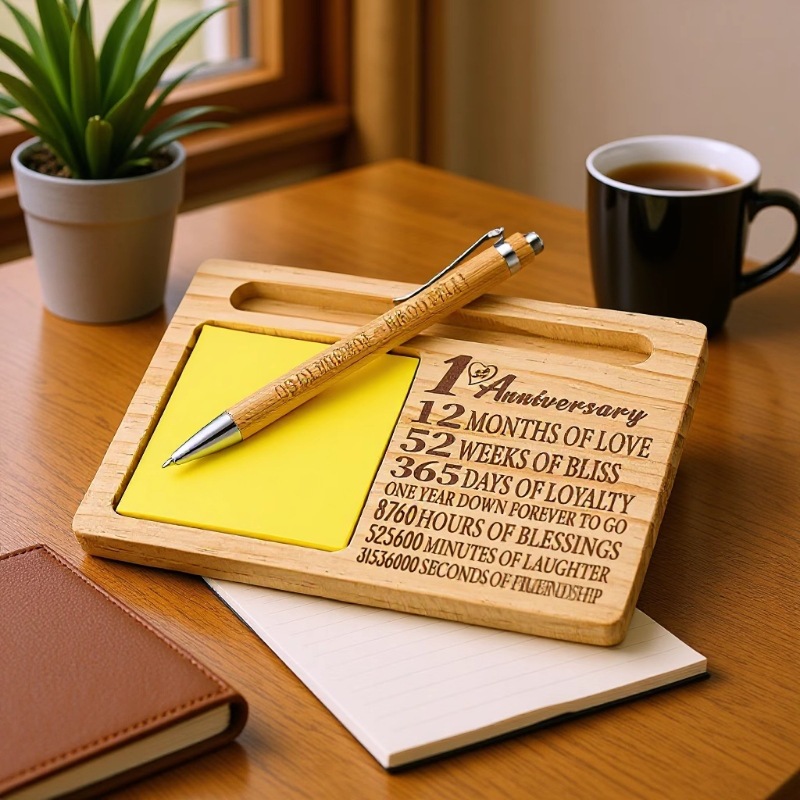 1st Anniversary
12 MONTHS OF LOVE
52 WEEKS OF BLISS
365 DAYS OF LOYALTY
ONE YEAR DOWN POREVER TO GO
8760 HOURS OF BLESSINGS
525600 MINUTES OF LAUGHTER
31536000 SECONDS OF